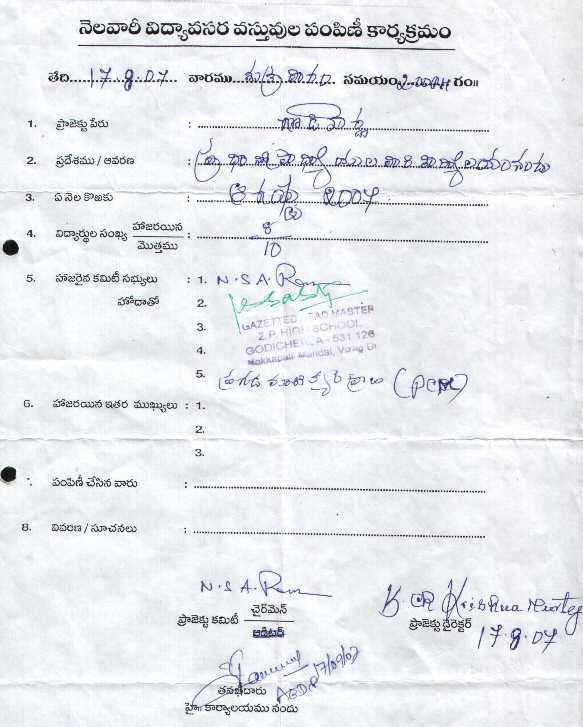 నెలవారీ విద్యావసర వస్తువుల పంపిణీ కార్యక్రమం
తేది....17.8.07.... వారము... శుక్రవారం సమయం... గం॥
1. ప్రాజెక్టు పేరు :
2. ప్రదేశము / ఆవరణ :
3. ఏ నెల కొఱకు : ఆగష్టు 2007
4. విద్యార్థుల సంఖ్య హాజరయిన : 8
మొత్తము 10
5. హాజరైన కమిటీ సభ్యులు : 1. N.S.A. Ram
హోదాతో 2.
3. GAZETTED HEAD MASTER
Z.P. HIGH SCHOOL
4. GODICHERLA - 531 126
Nakkapalli Mandal, Vizag Dt
5.
6. హాజరయిన ఇతర ముఖ్యులు : 1.
2.
3.
పంపిణీ చేసిన వారు :
8. వివరణ / సూచనలు :
N.S.A. Ram
ప్రాజెక్టు కమిటీ చైర్‌మెన్
ఆడిటర్
K. Krishna Murty
ప్రాజెక్టు డైరెక్టర్
17.8.07
17/08/07
తనఖీదారు
హై॥ కార్యాలయము నందు